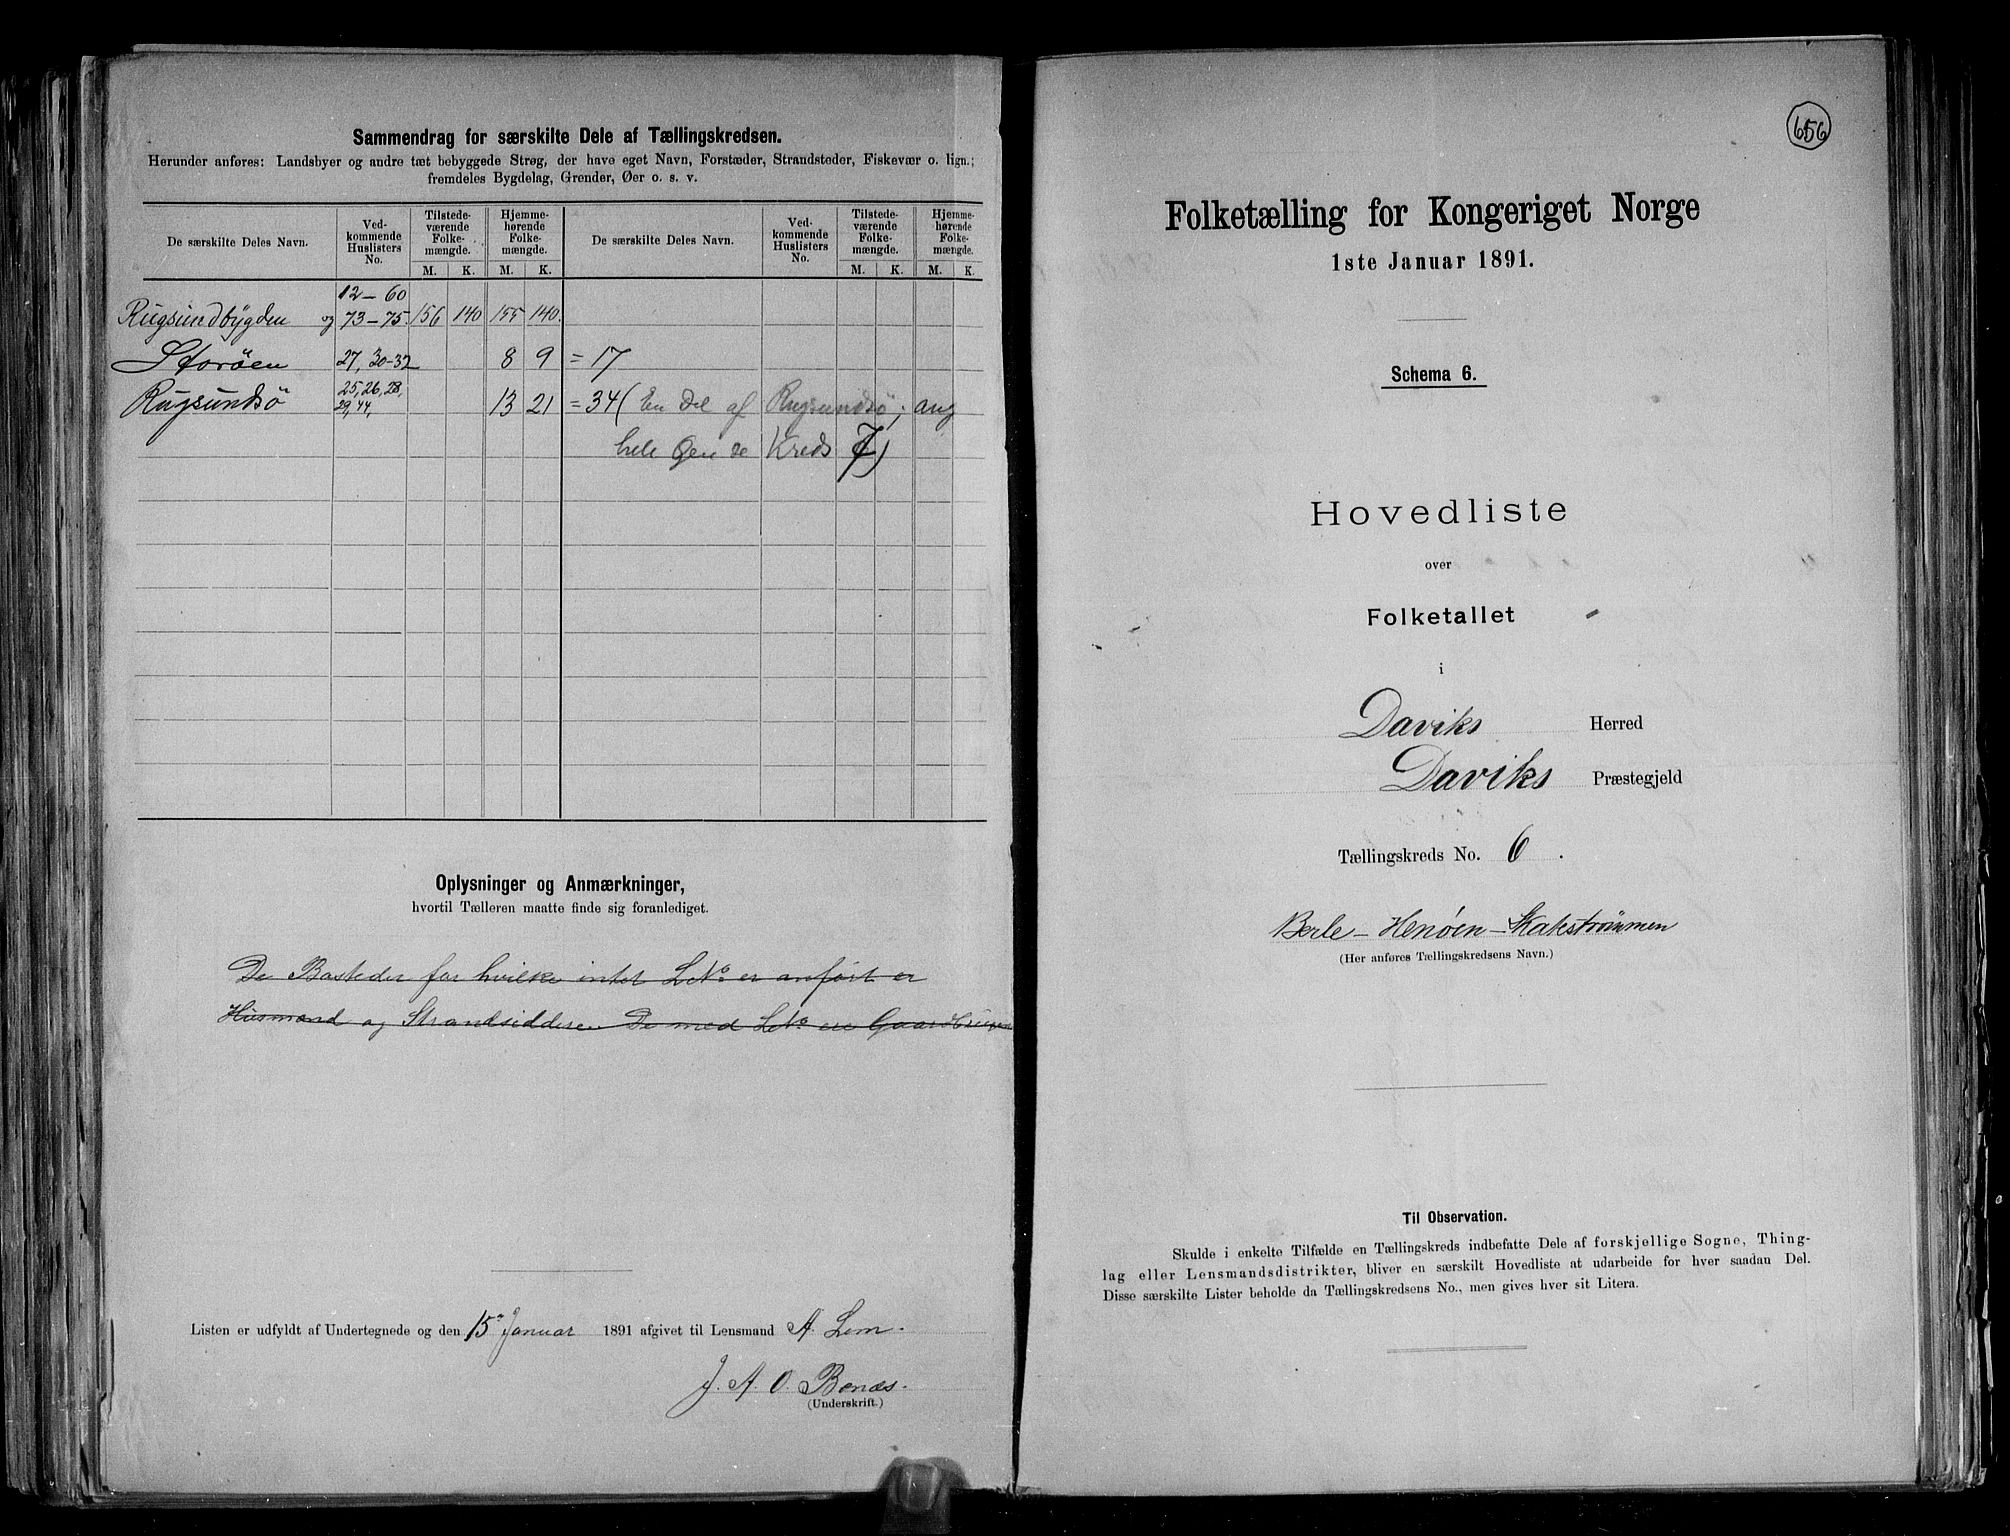 Sammendrag for særskilte Dele af Tællingskredsen.
Herunder anføres: Landsbyer og andre tæt bebyggede Strøg, der have eget Navn, Forstæder, Strandsteder, Fiskevær o. lign.;
fremdeles Bygdelag, Grender, Øer o. s. v.
De særskilte Deles Navn. Ved-kommende Huslisters No. Tilstede-værende Folke-mængde. Hjemme-hørende Folke-mængde. De særskilte Deles Navn. Ved-kommende Huslisters No. Tilstede-værende Folke-mængde. Hjemme-hørende Folke-mængde.
M. K. M. K. M. K. M. K.
12-60
Rugsundbygden og 73-75. 156 140 155 140.
Storöen 27, 30-32 8 9 = 17
Rugsundsö 25, 26, 28, 29, 44, 13 21 = 34 (En Del af Rugsundsö; ang
hele Øen se Kreds 7)
Oplysninger og Anmærkninger,
hvortil Tælleren maatte finde sig foranlediget.
De Bosteder for hvilke intet L.No er anført er
Husmænd og Strandsiddere. De med L.No ere Gaardbruger
Listen er udfyldt af Undertegnede og den 15de Januar 1891 afgivet til Lensmand A. Lem.
J. A. O. Bonæs.
(Underskrift.)
656
Folketælling for Kongeriget Norge
1ste Januar 1891.
Schema 6.
Hovedliste
over
Folketallet
i
Daviks Herred
Daviks Præstegjeld
Tællingskreds No. 6.
Berle - Henøen - Skatestrømmen
(Her anføres Tællingskredsens Navn.)
Til Observation.
Skulde i enkelte Tilfælde en Tællingskreds indbefatte Dele af forskjellige Sogne, Thing-
lag eller Lensmandsdistrikter, bliver en særskilt Hovedliste at udarbeide for hver saadan Del.
Disse særskilte Lister beholde da Tællingskredsens No., men gives hver sit Litera.